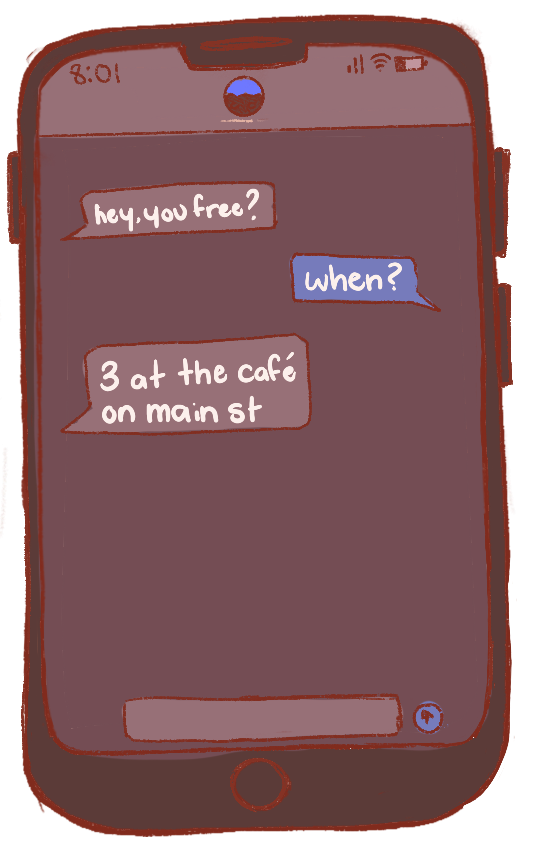 8:01
hey, you free?
when?
3 at the café
on main st